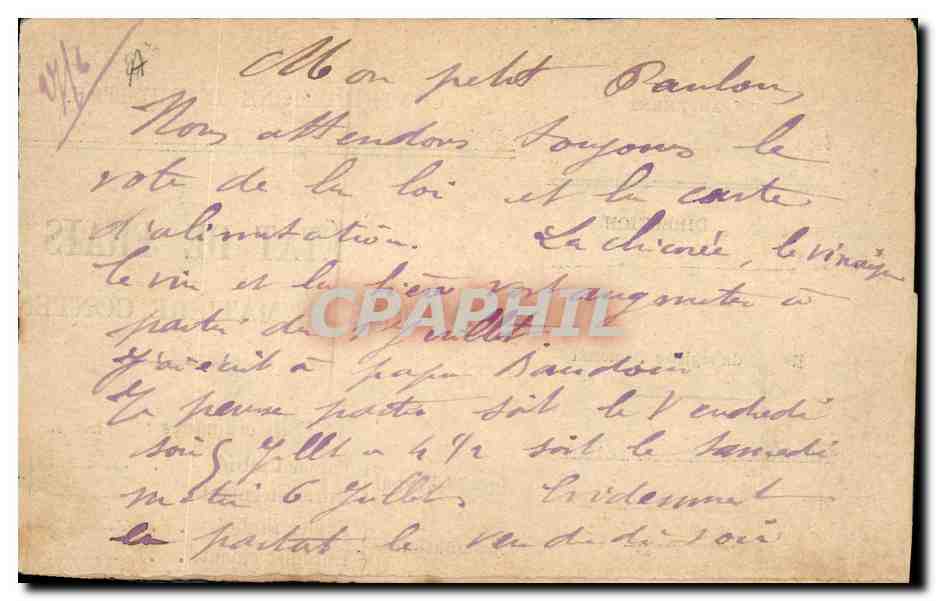 27/6 A
Mon petit Paulon,
Nous attendons toujours le
vote de la loi et la carte
d'alimentation. La chicorée, le vinaigre
le vin et la bière vont augmenter à
partir du 1er Juillet.
J'ai écrit à papa Baudoin
Je pense partir soit le Vendredi
soir 5 Jllt à 4 1/2 soit le Samedi
matin 6 Juillet. Evidemment
en partant le vendredi soir
CPAPHIL